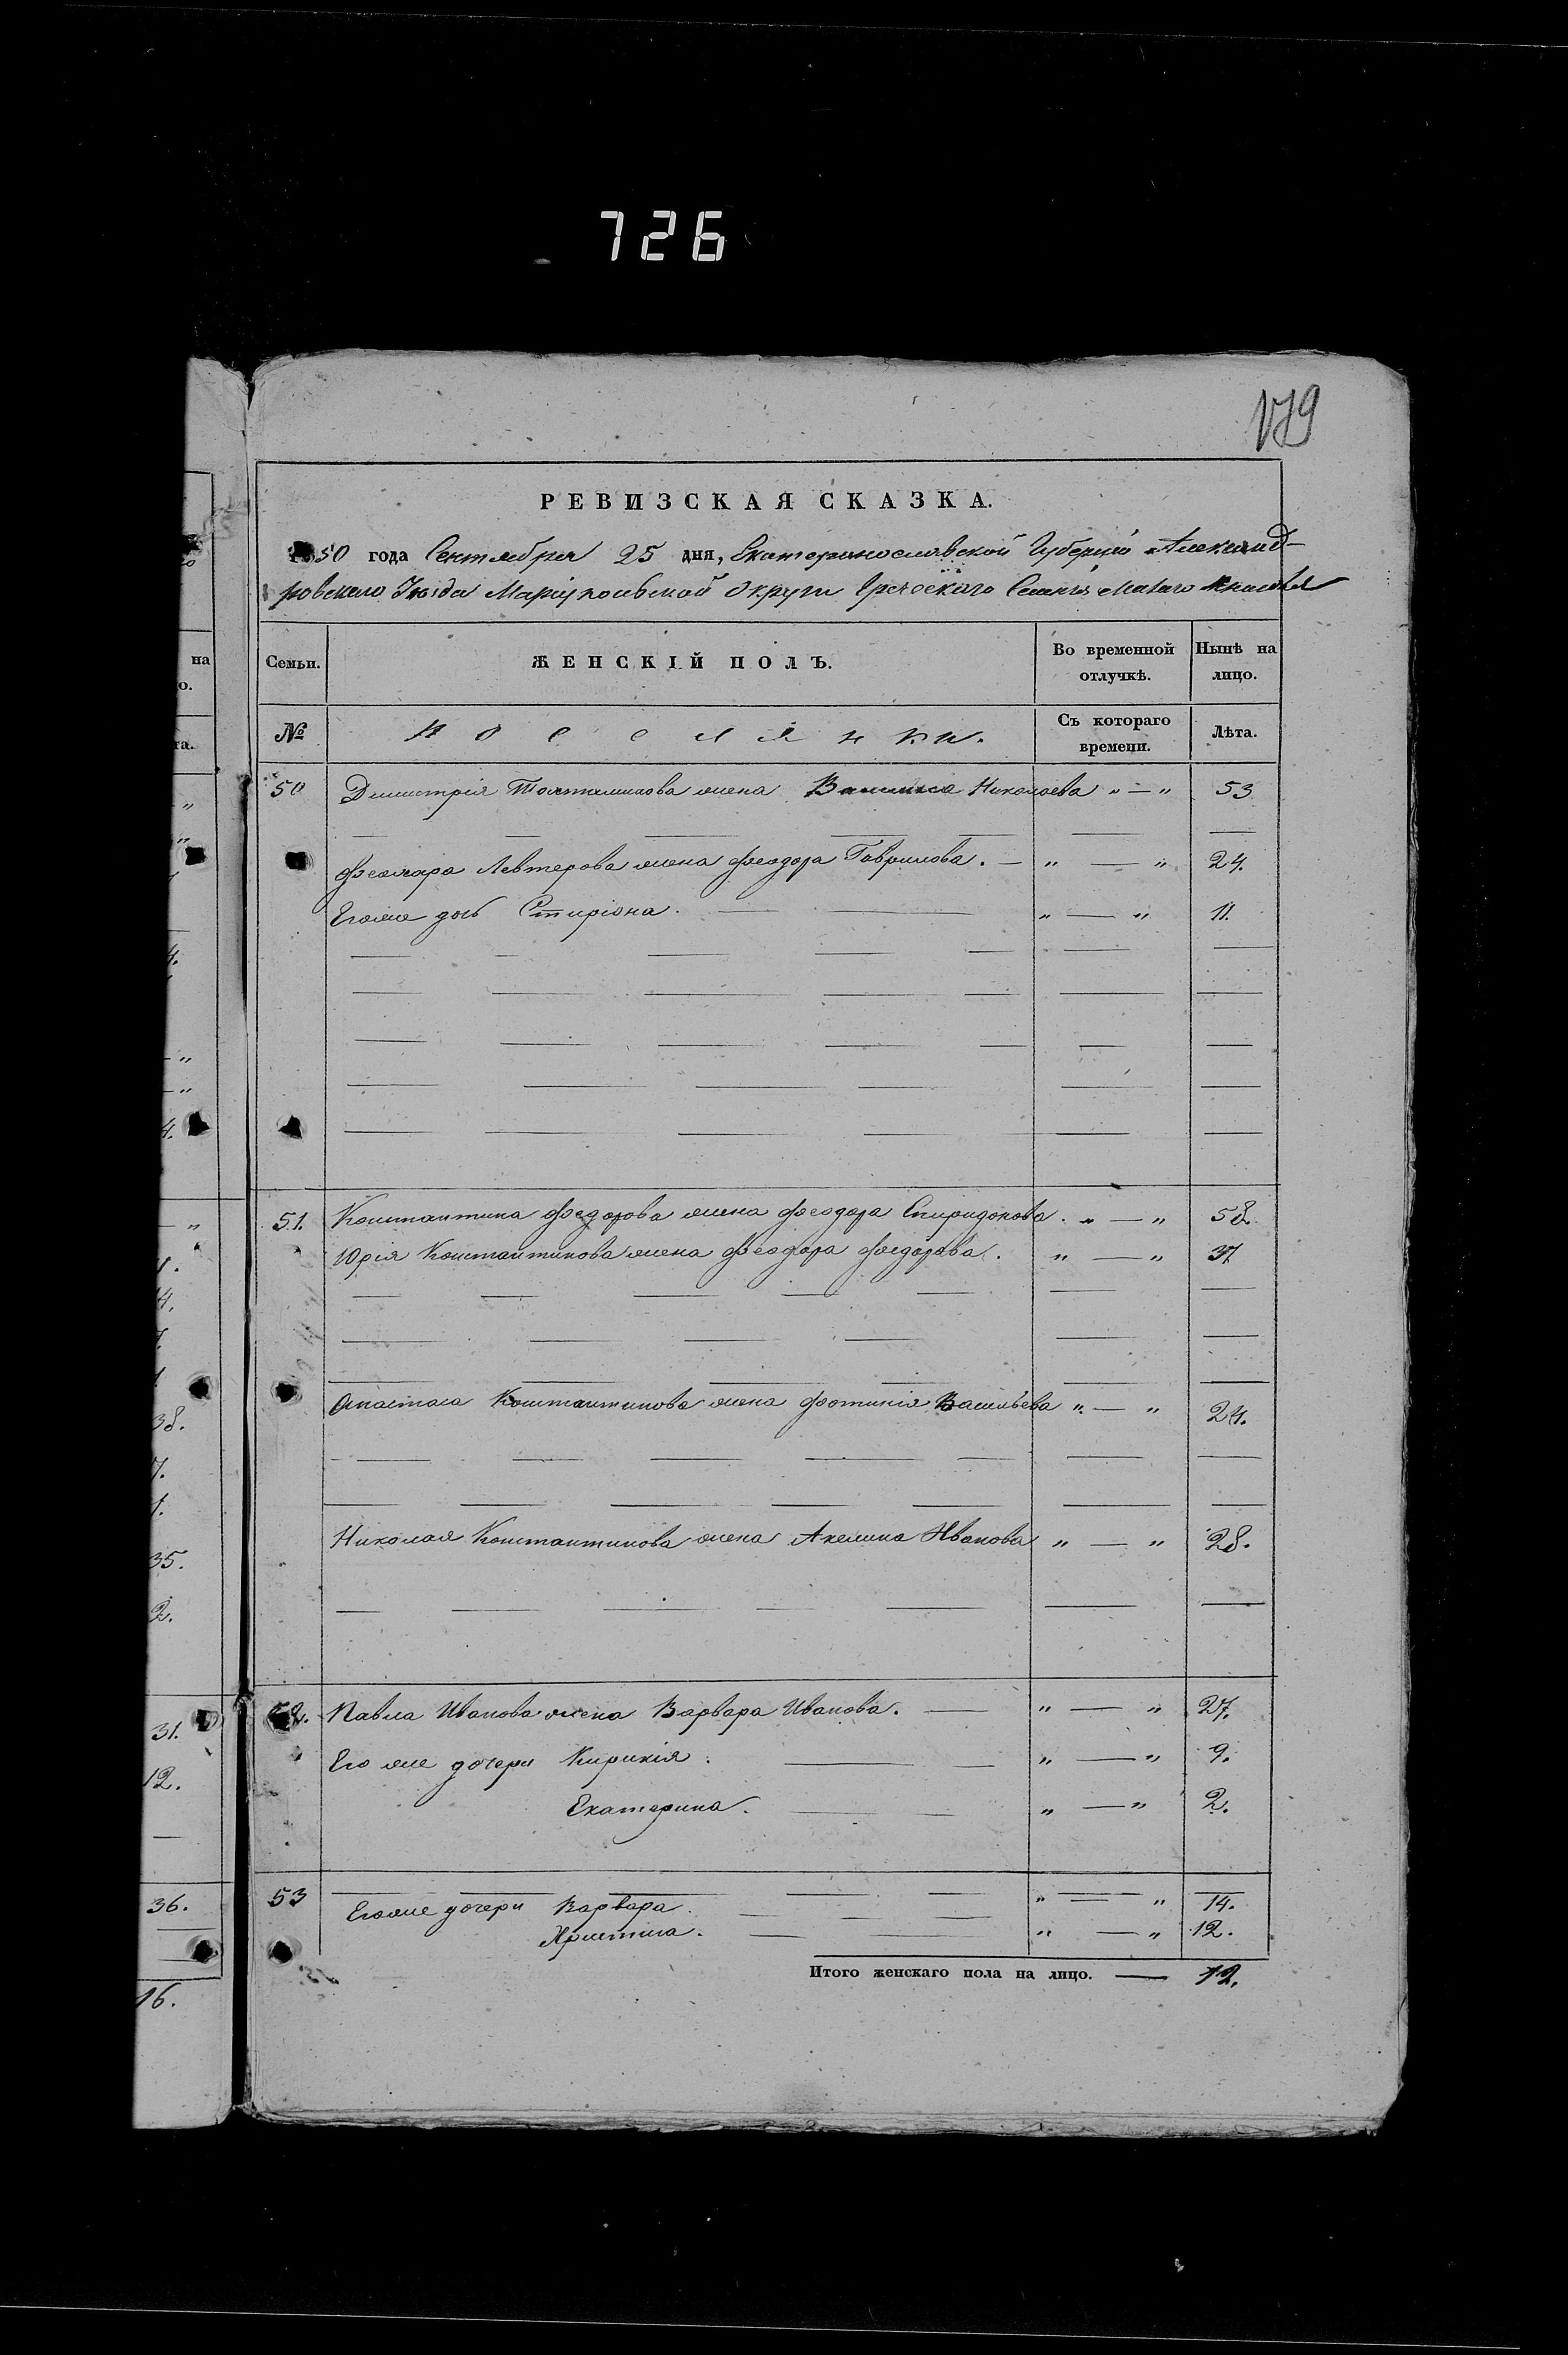 726
179
РЕВИЗСКАЯ СКАЗКА.
1850 года Сентября 25 дня, Екатеринославской Губерніи Александ-
ровскаго Уѣзда Маріупольской Округи Греческаго
на
о.
та.
Семьи.
ЖЕНСКІЙ ПОЛЪ.
Во временной отлучкѣ.
Нынѣ на лицо.
№
Поселянки.
Съ котораго времени.
Лѣта.
50 Димитрія жена Николаева " — " 53
Левтерова жена Феодора Гаврилова. — " — " 24.
Егоже дочь " — " 11.
51. Константина Федорова жена Феодора Спиридонова. " — " 58.
Юрія Константинова жена Феодора Федорова. " — " 37
Анастаса Константинова жена Фотинія Васильева " — " 24.
Николая Константинова жена Акелина Иванова " — " 28.
52. Павла Иванова жена Варвара Иванова. — " — " 27.
Его же дочери Кирикія. " — " 9.
Екатерина. " — " 2.
53 Егоже дочери Варвара. " — " 14.
Христина. " — " 12.
Итого женскаго пола на лицо. — 12.
38.
35.
2.
31.
12.
36.
16.